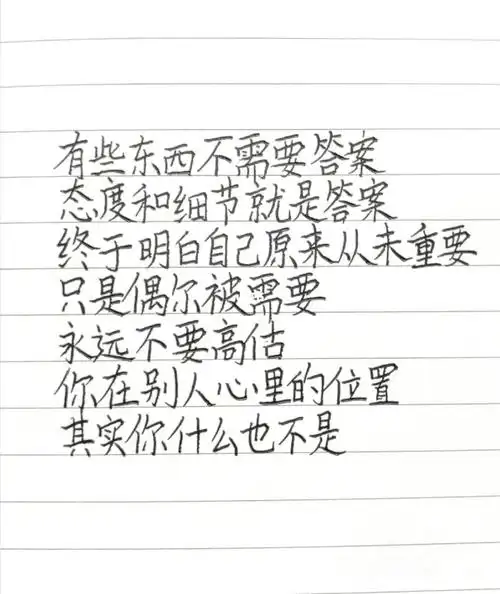 有些东西不需要答案
态度和细节就是答案
终于明白自己原来从未重要
只是偶尔被需要
永远不要高估
你在别人心里的位置
其实你什么也不是